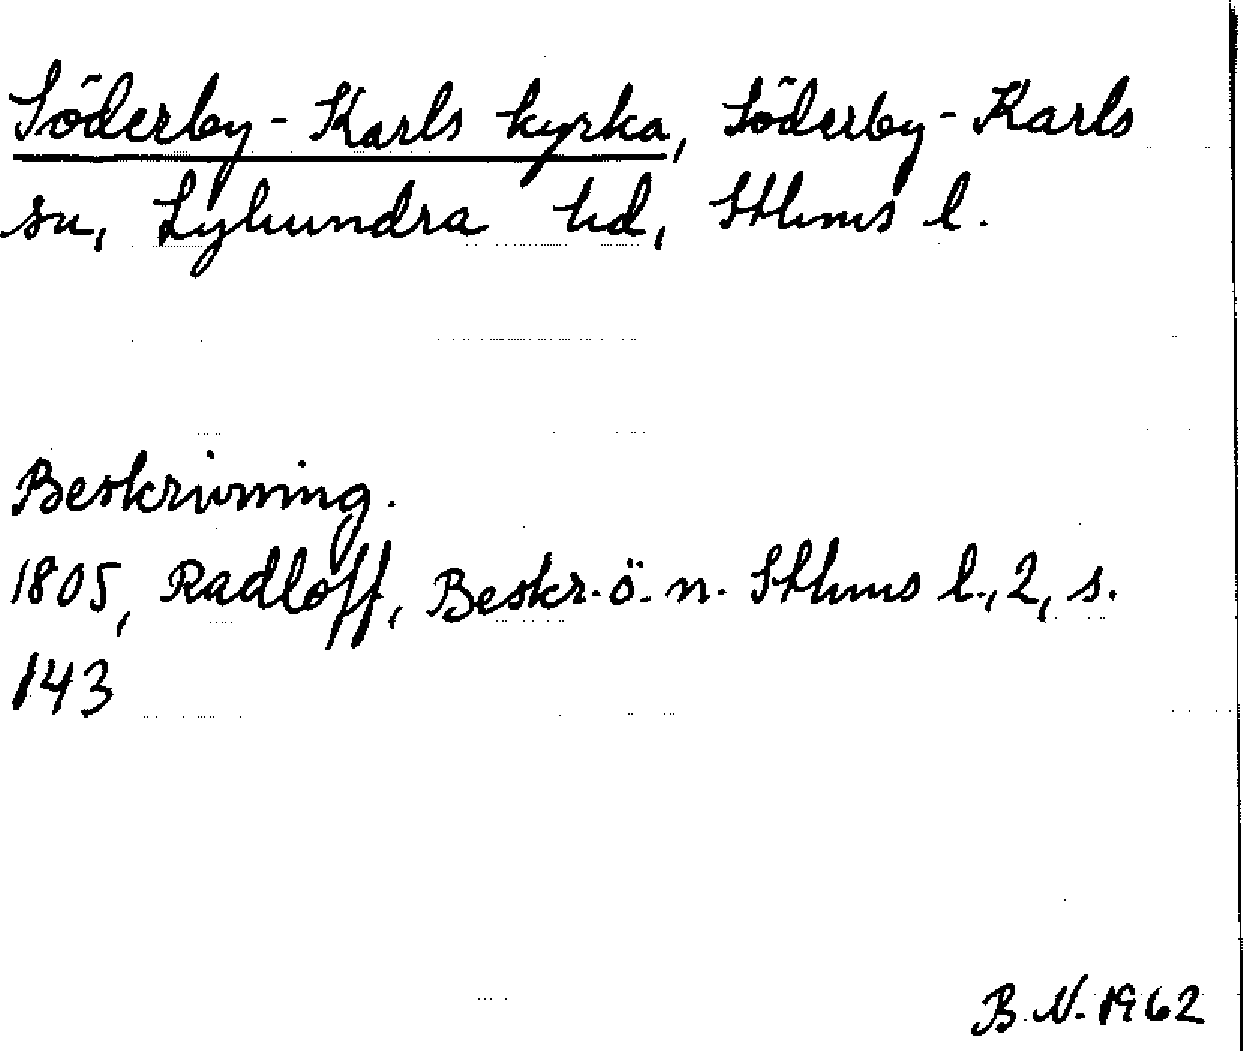 Söderby-Karls kyrka, Söderby-Karls
sn, Lyhundra hd, Sthms l.
Beskrivning.
1805, Radloff, Beskr. ö. n. Sthms l., 2, s.
143
B.N. 1962